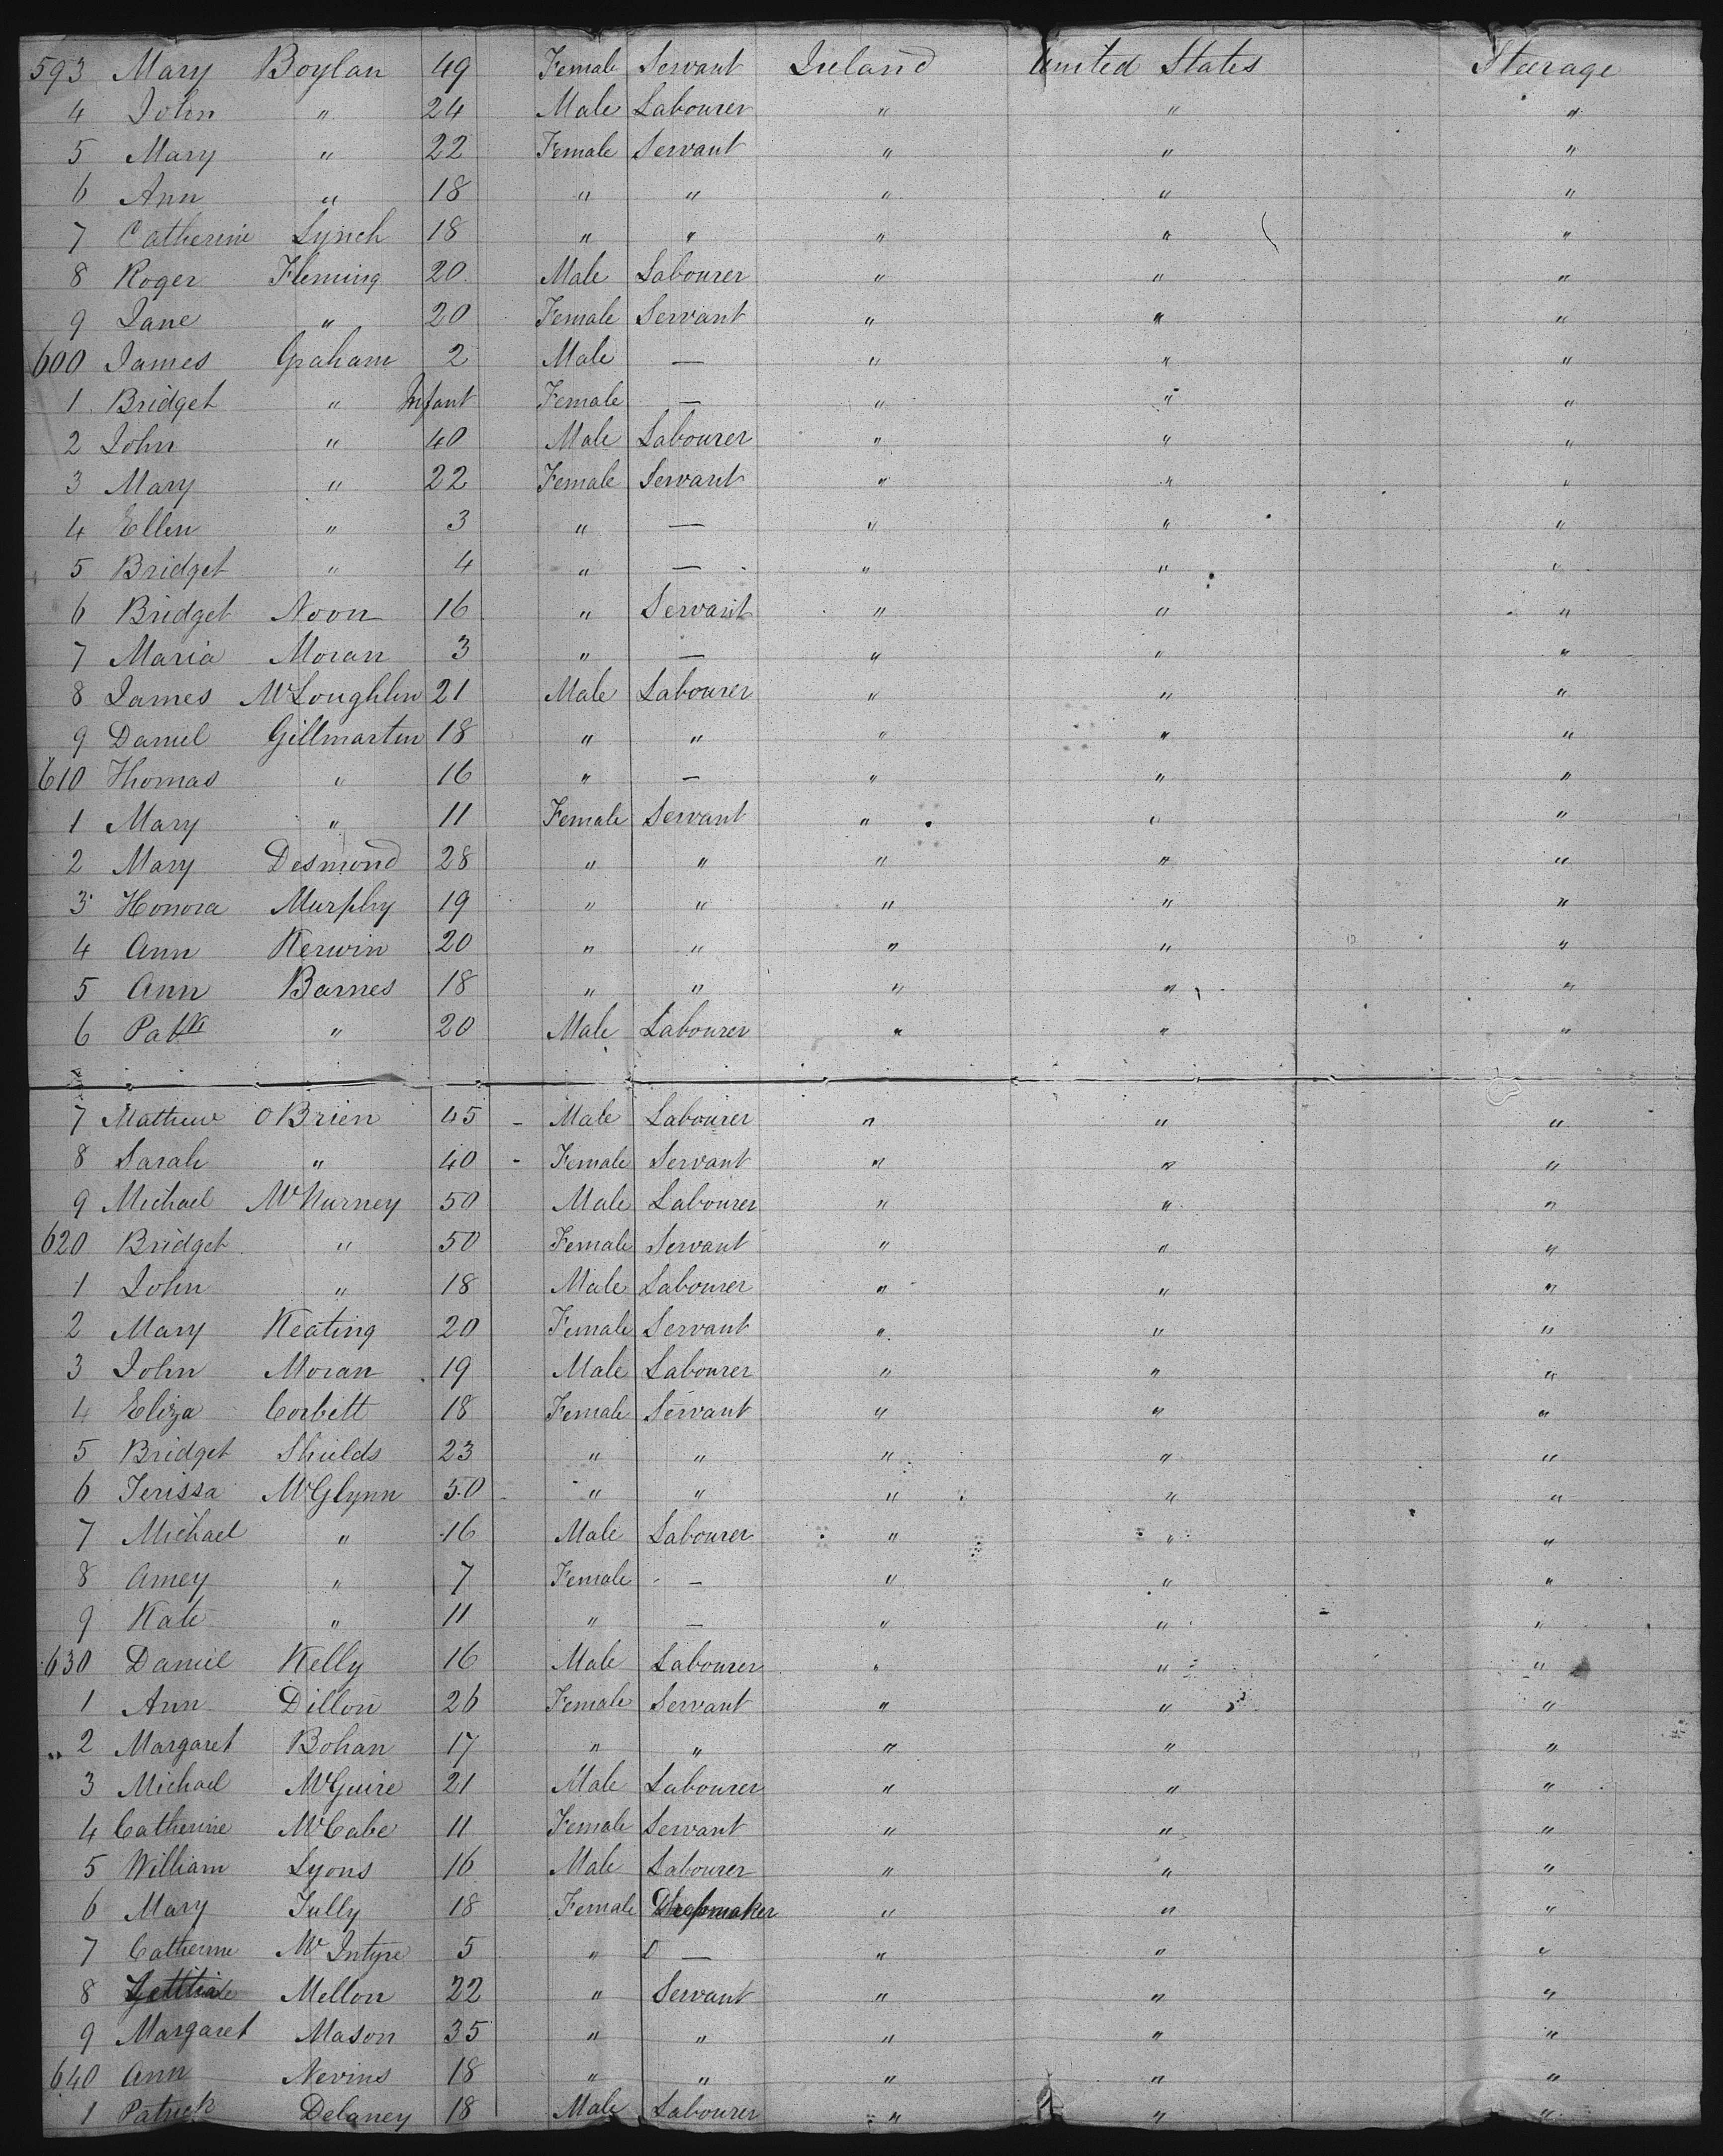 593 Mary Boylan 49 Female Servant Ireland United States Steerage
4 John " 24 Male Labourer " " "
5 Mary " 22 Female Servant " " "
6 Ann " 18 " " " " "
7 Catherine Lynch 18 " " " " "
8 Roger Fleming 20 Male Labourer " " "
9 Jane " 20 Female Servant " " "
600 James Graham 2 Male — " " "
1 Bridget " Infant Female — " " "
2 John " 40 Male Labourer " " "
3 Mary " 22 Female Servant " " "
4 Ellen " 3 " — " " "
5 Bridget " 4 " — " " "
6 Bridget Noon 16 " Servant " " "
7 Maria Moran 3 " — " " "
8 James McLoughlin 21 Male Labourer " " "
9 Daniel Gillmartin 18 " " " " "
610 Thomas " 16 " — " " "
1 Mary " 11 Female Servant " " "
2 Mary Desmond 28 " " " " "
3 Honora Murphy 19 " " " " "
4 Ann Kerwin 20 " " " " "
5 Ann Barnes 18 " " " " "
6 Patk " 20 Male Labourer " " "
7 Mathew OBrien 45 - Male Labourer " " "
8 Sarah " 40 - Female Servant " " "
9 Michael McNurney 50 Male Labourer " " "
620 Bridget " 50 Female Servant " " "
1 John " 18 Male Labourer " " "
2 Mary Keating 20 Female Servant " " "
3 John Moran 19 Male Labourer " " "
4 Eliza Corbett 18 Female Servant " " "
5 Bridget Shields 23 " " " " "
6 Terissa McGlynn 50 " " " " "
7 Michael " 16 Male Labourer " " "
8 Amey " 7 Female — " " "
9 Kate " 11 " — " " "
630 Daniel Kelly 16 Male Labourer " " "
1 Ann Dillon 26 Female Servant " " "
2 Margaret Bohan 17 " " " " "
3 Michael McGuire 21 Male Labourer " " "
4 Catherine McCabe 11 Female Servant " " "
5 William Lyons 16 Male Labourer " " "
6 Mary Tully 18 Female " " "
7 Catherine McIntyre 5 " — " " "
8 Mellon 22 " Servant " " "
9 Margaret Mason 35 " " " " "
640 Ann Nevins 18 " " " " "
1 Patrick Delaney 18 Male Labourer " " "